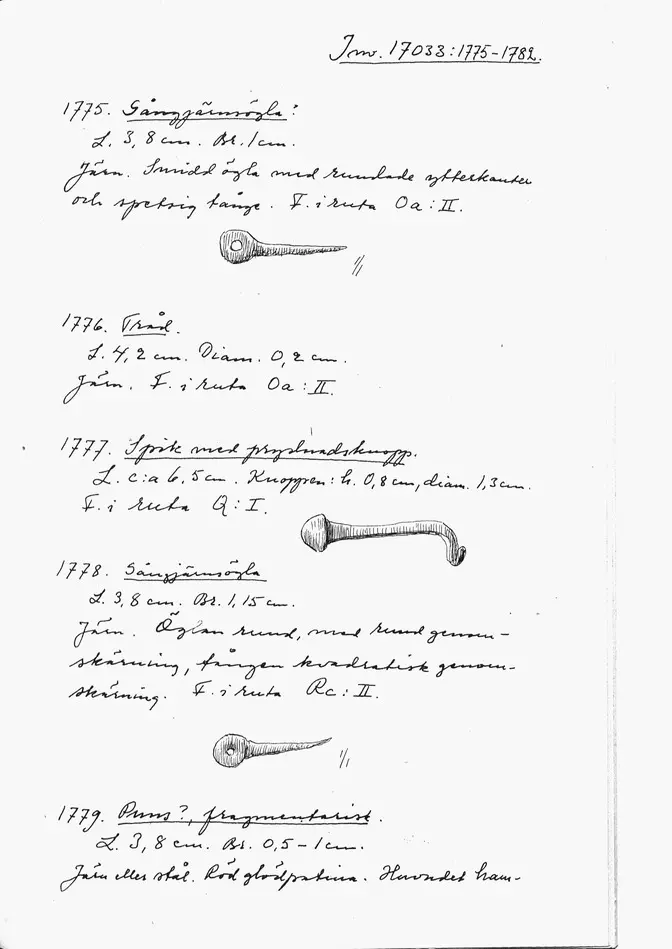 Inv. 17033:1775-1782.
1775. Gångjärnsögla?
L. 3,8 cm. Br. 1 cm.
Järn. Smidd ögla med rundade ytterkanter
och spetsig tånge. F. i ruta Oa:II.
1/1
1776. Tråd.
L. 4,2 cm. Diam. 0,2 cm.
Järn. F. i ruta Oa:II.
1777. Spik med prydnadsknopp.
L. c:a 6,5 cm. Knoppen: h. 0,8 cm, diam. 1,3 cm.
F. i ruta Q:I.
1778. Gångjärnsögla
L. 3,8 cm. Br. 1,15 cm.
Järn. Öglan rund, med rund genom-
skärning, tången kvadratisk genom-
skärning. F. i ruta Rc:II.
1/1
1779. Puns?, fragmentarisk.
L. 3,8 cm. Br. 0,5-1 cm.
Järn eller stål. Röd glödpatina. Huvudet ham-